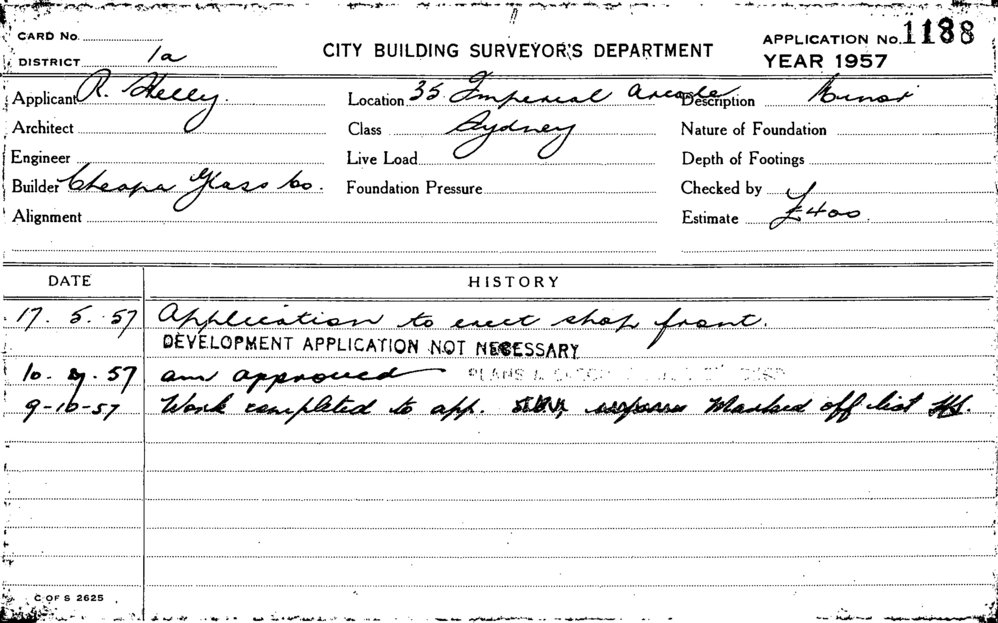 CARD No.
CITY BUILDING SURVEYOR'S DEPARTMENT
APPLICATION No. 1188
DISTRICT 1a
YEAR 1957
Applicant R. Kelly. Location 35 Imperial Arcade Description Minor
Architect Class Sydney Nature of Foundation
Engineer Live Load Depth of Footings
Builder Cheapa Glass Co. Foundation Pressure Checked by
Alignment Estimate £400
DATE HISTORY
17. 5. 57 Application to erect shop front.
DEVELOPMENT APPLICATION NOT NECESSARY
10. 57 approved PLANS &
9-10-57 Work completed to app. Marked off list
C OF S 2625